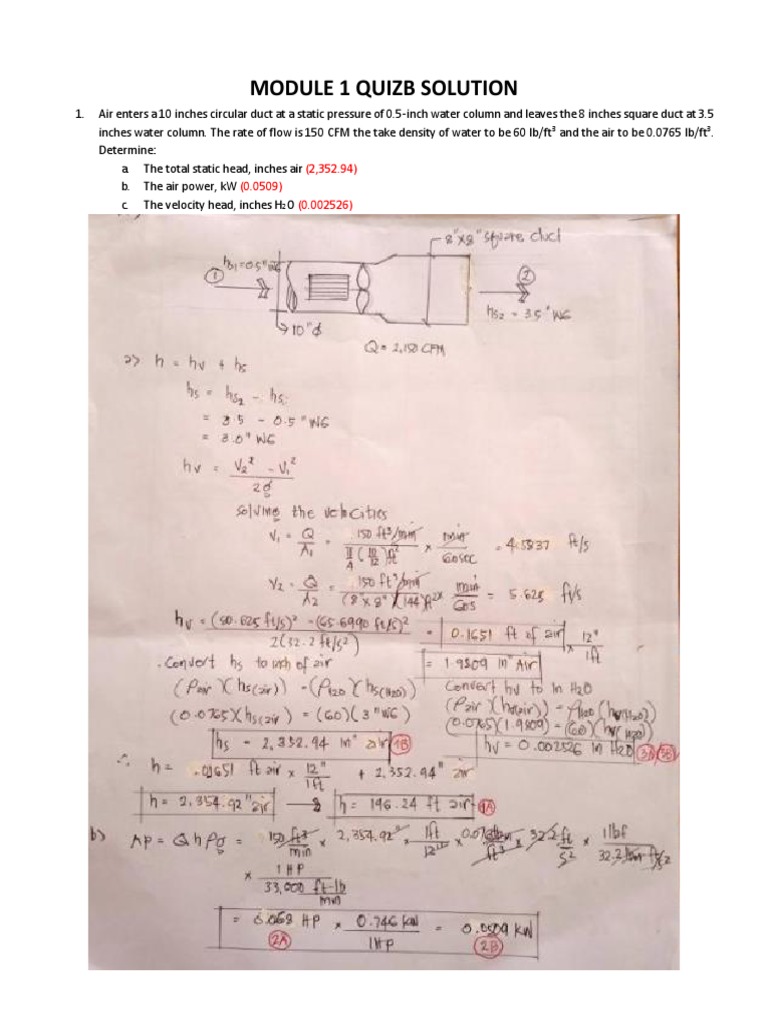 MODULE 1 QUIZB SOLUTION
1. Air enters a 10 inches circular duct at a static pressure of 0.5-inch water column and leaves the 8 inches square duct at 3.5
inches water column. The rate of flow is 150 CFM the take density of water to be 60 lb/ft³ and the air to be 0.0765 lb/ft³.
Determine:
a. The total static head, inches air (2,352.94)
b. The air power, kW (0.0509)
c. The velocity head, inches H₂O (0.002526)
8"x8" square duct
hs1=0.5"WG
① ②
hs2 = 3.5" WG
10"ϕ
Q = 2,150 CFM
a) h = hv + hs
hs = hs2 - hs1
= 3.5 - 0.5" WG
= 3.0" WG
hv = V2² - V1² / 2g
solving the velocities
V1 = Q/A1 = 150 ft³/min / π/4 (10/12)ft² x min/60sec = 4.5837 ft/s
V2 = Q/A2 = 150 ft³/min / (8"x8")(144)ft² x min/60s = 5.625 ft/s
hv = (50.625 ft/s)² - (65.6990 ft/s)² / 2(32.2 ft/s²) = 0.1651 ft of air x 12"/1ft
= 1.9809 in Air
Convert hs to inch of air
(ρair)(hs(air)) = (ρH2O)(hs(H2O))
(0.0765)(hs(air)) = (60)(3"WG)
hs = 2,352.94 in air 1B
Convert hv to in H2O
(ρair)(hv(air)) = ρH2O(hv(H2O))
(0.0765)(1.9809) = (60)(hv(H2O))
hv = 0.002526 in H2O 3A/3B
∴ h = .01651 ft air x 12"/1ft + 2,352.94" air
h = 2,354.92" air → h = 196.24 ft air 1A
b) AP = Q h ρ g = 150 ft³/min x 2,354.92" x 1ft/12in x 32.2 ft/s² x 1lbf
x 1HP / 33,000 ft-lb/min
HP x 0.746 kW/1HP = 0.0509 kW
2A 2B